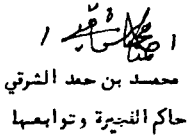 محمد بن حمد الشرقي
حاكم الفجيرة وتوابعها